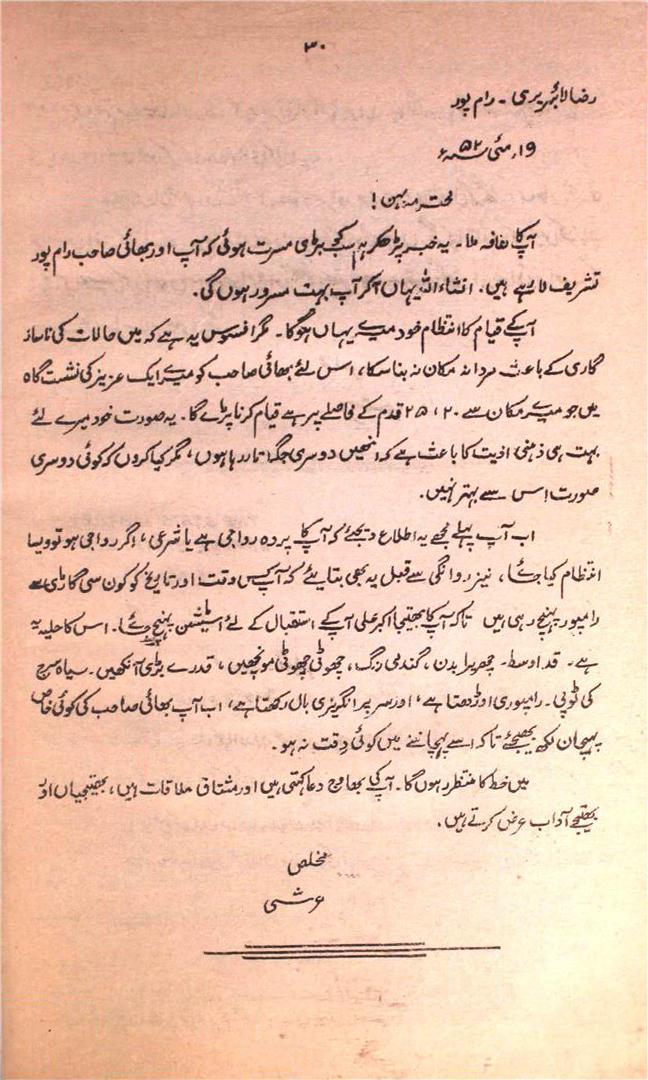 ۳۰
رضا لائبریری - رام پور
۱۹؍ مئی ۵۲ء
محترمہ بہن!
آپکا لفافہ ملا۔ یہ خبر پڑھکر ہم سبکو بڑی مسرت ہوئی کہ آپ اور بھائی صاحب رام پور
تشریف لا رہے ہیں۔ انشاء اللہ یہاں آکر آپ بہت مسرور ہوں گی۔
آپکے قیام کا انتظام خود میرے یہاں ہوگا۔ مگر افسوس یہ ہے کہ میں حالات کی ناساز
گاری کے باعث مردانہ مکان نہ بنا سکا، اس لئے بھائی صاحب کو میرے ایک عزیز کی نشست گاہ
میں جو میرے مکان سے ۲۰، ۲۵ قدم کے فاصلے پر ہے قیام کرنا پڑے گا۔ یہ صورت خود میرے لئے
بہت ہی ذہنی اذیت کا باعث ہے کہ انھیں دوسری جگہ اتار رہا ہوں، مگر کیا کروں کہ کوئی دوسری
صورت اس سے بہتر نہیں۔
اب آپ پہلے مجھے یہ اطلاع دیجئے کہ آپ کا پردہ رواجی ہے یا شرعی، اگر رواجی ہو تو ویسا
انتظام کیا جائے، نیز روانگی سے قبل یہ بھی بتایئے کہ آپ کس وقت اور تاریخ کو کون سی گاڑی سے
رامپور پہنچ رہی ہیں تاکہ آپ کا بھتیجا اکبر علی آپکے استقبال کے لئے اسٹیشن پہنچ جائے۔ اس کا حلیہ یہ
ہے۔ قد اوسط۔ چھریرا بدن، گندمی رنگ، چھوٹی چھوٹی مونچھیں، قدرے بڑی آنکھیں۔ سیاہ سرج
کی ٹوپی۔ رامپوری اوڑھتا ہے، اور سر پر انگریزی بال رکھتا ہے، اب آپ بھائی صاحب کی کوئی خاص
پہچان لکھ بھیجئے تاکہ اسے پہچاننے میں کوئی دقت نہ ہو۔
میں خط کا منتظر ہوں گا۔ آپ کی بھاوج دعا کہتی ہیں اور مشتاق ملاقات ہیں، بھتیجیاں اور
بھتیجے آداب عرض کرتے ہیں۔
مخلص
عرشی